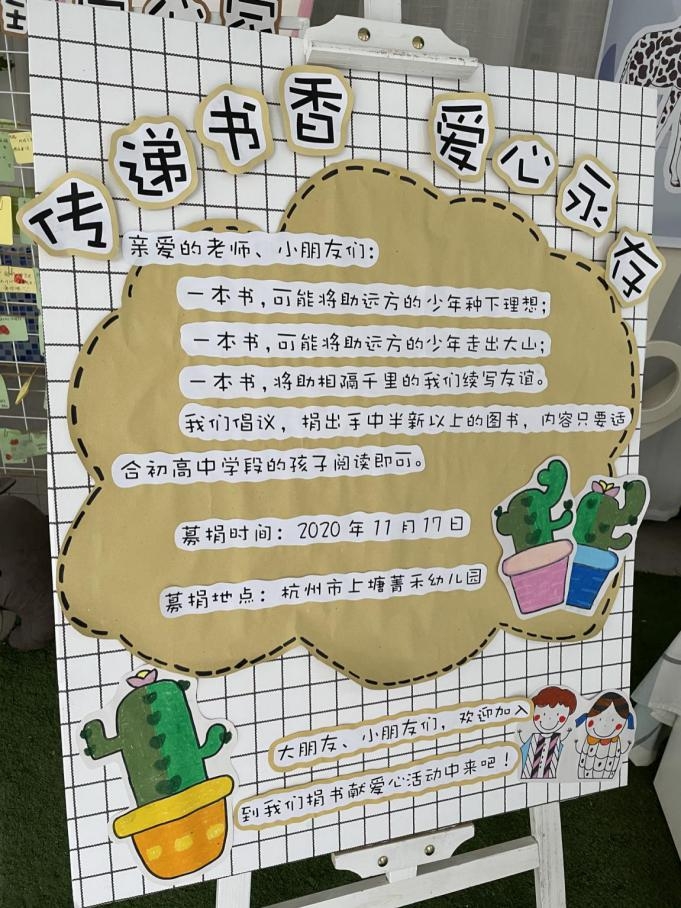 传递书香 爱心永存
亲爱的老师、小朋友们:
一本书,可能将助远方的少年种下理想;
一本书,可能将助远方的少年走出大山;
一本书,将助相隔千里的我们续写友谊。
我们倡议,捐出手中半新以上的图书,内容只要适
合初高中学段的孩子阅读即可。
募捐时间:2020年11月17日
募捐地点:杭州市上塘菁禾幼儿园
大朋友、小朋友们,欢迎加入
到我们捐书献爱心活动中来吧!